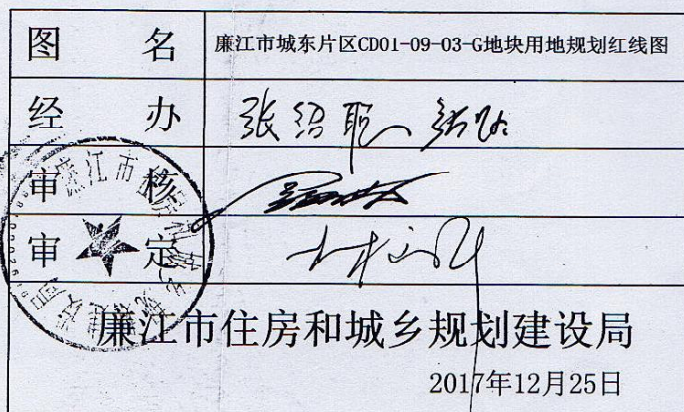 图名 廉江市城东片区CD01-09-03-G地块用地规划红线图
经办 张绍聪
审核
审定
廉江市住房和城乡规划建设局
2017年12月25日